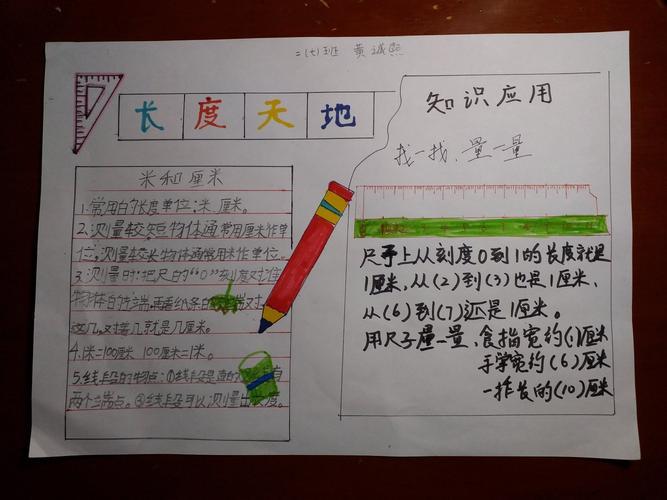 二(七)班 黄诚熙
长度天地
米和厘米
1.常用的长度单位:米、厘米。
2.测量较短物体通常用厘米作单
位,测量较长物体通常用米作单位。
3.测量时:把尺的“0”刻度对准
物体的左端,再看纸条的右端对
这几,对着几就是几厘米。
4.1米=100厘米 100厘米=1米。
5.线段的特点:①线段是直的
两个端点。②线段可以测量出长度。
知识应用
找一找、量一量
尺子上从刻度0到1的长度就是
1厘米,从(2)到(3)也是1厘米、
从(6)到(7)还是1厘米。
用尺子量一量、食指宽约(1)厘米
手掌宽约(6)厘米
一拃长的(10)厘米